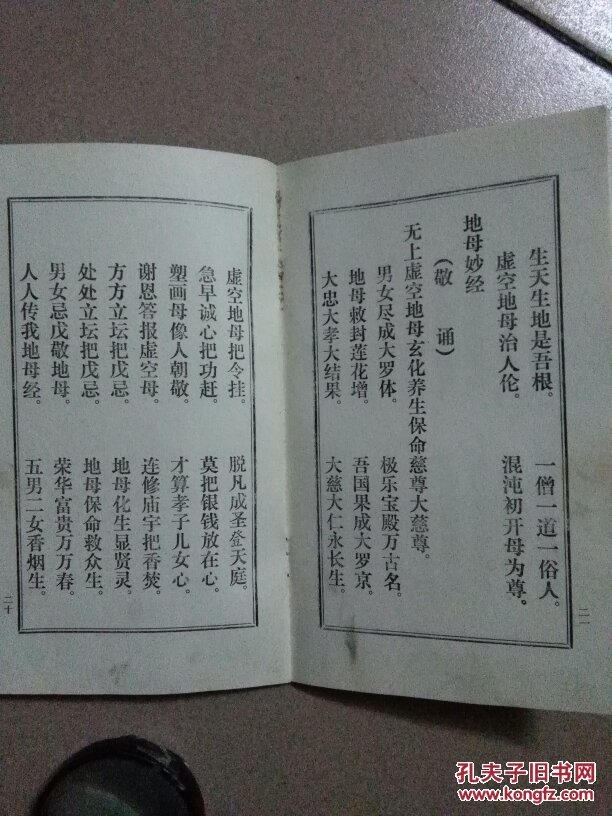 人人传我地母经。 五男二女香烟生。
男女忌戊敬地母。 荣华富贵万万春。
处处立坛把戊忌。 地母保命救众生。
方方立坛把戊忌。 地母化生显贤灵。
谢恩答报虚空母。 连修庙宇把香焚。
塑画母像人朝敬。 才算孝子儿女心。
急早诚心把功赶。 莫把银钱放在心。
虚空地母把令挂。 脱凡成圣登天庭。
二十
大忠大孝大结果。 大慈大仁永长生。
地母敕封莲花增。 吾国果成大罗京。
男女尽成大罗体。 极乐宝殿万古名。
无上虚空地母玄化养生保命慈尊大慈尊。
（敬 诵）
地母妙经
虚空地母治人伦。 混沌初开母为尊。
生天生地是吾根。 一僧一道一俗人。
二一
孔夫子旧书网
www.kongfz.com